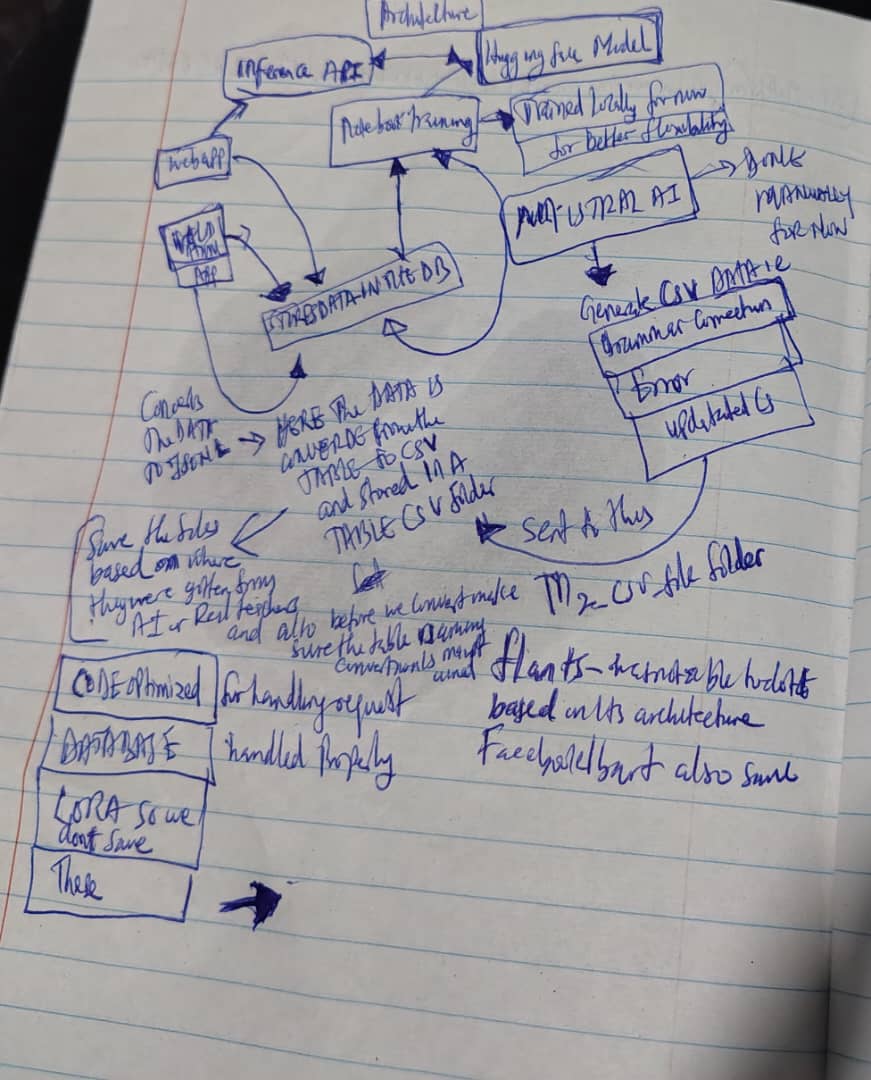 Architecture
Inference API
Hugging face Model
Notebook Training
Trained locally for now
for better flexibility
webapp
AI
DONE
MANUALLY
FOR NOW
APP
STORES DATA IN THE DB
Generate CSV DATA i.e
Grammar Correction
Error
The DATA
HERE The DATA is
from the
TABLE to CSV
and stored In A
TABLE CSV folder
Sent to this
CSV_file folder
Save the files
based on where
they were gotten from
AI or Real teachers
and also before we convert make
sure the table naming
CODE optimized
for handling request
DATABASE
handled Properly
LORA so we
dont save
These
based on its architecture
Facebook/bart also same